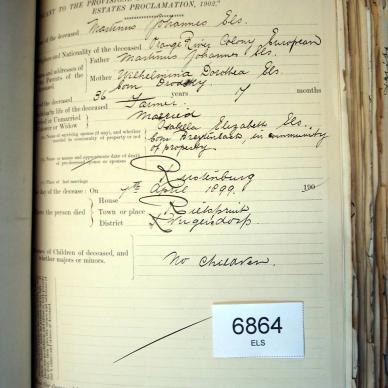 ANT TO THE PROVISIONS
ESTATES PROCLAMATION, 1902."
of the deceased Martinus Johannes Els.
and Nationality of the deceased Orange River Colony European
and addresses of
Parents of the
deceased
Father Martinus Johannes Els.
Mother Wilhelmina Dorothea Els
born
the deceased 36 years 7 months
Farmer
or Unmarried
or Widow
Married
Isabella Elizabeth Els
born Breytenbach, in community
of property
Name of surviving spouse (if any), and whether
married in community of property or not
Name or names and approximate date of death
of pre-deceased spouse or spouses
Place of last marriage Rustenburg
day of the decease: On 7th April 1899. 190
the person died
House
Town or place Rietspruit
District Krugersdorp
Names of Children of deceased, and
whether majors or minors.
No Children.
6864
ELS